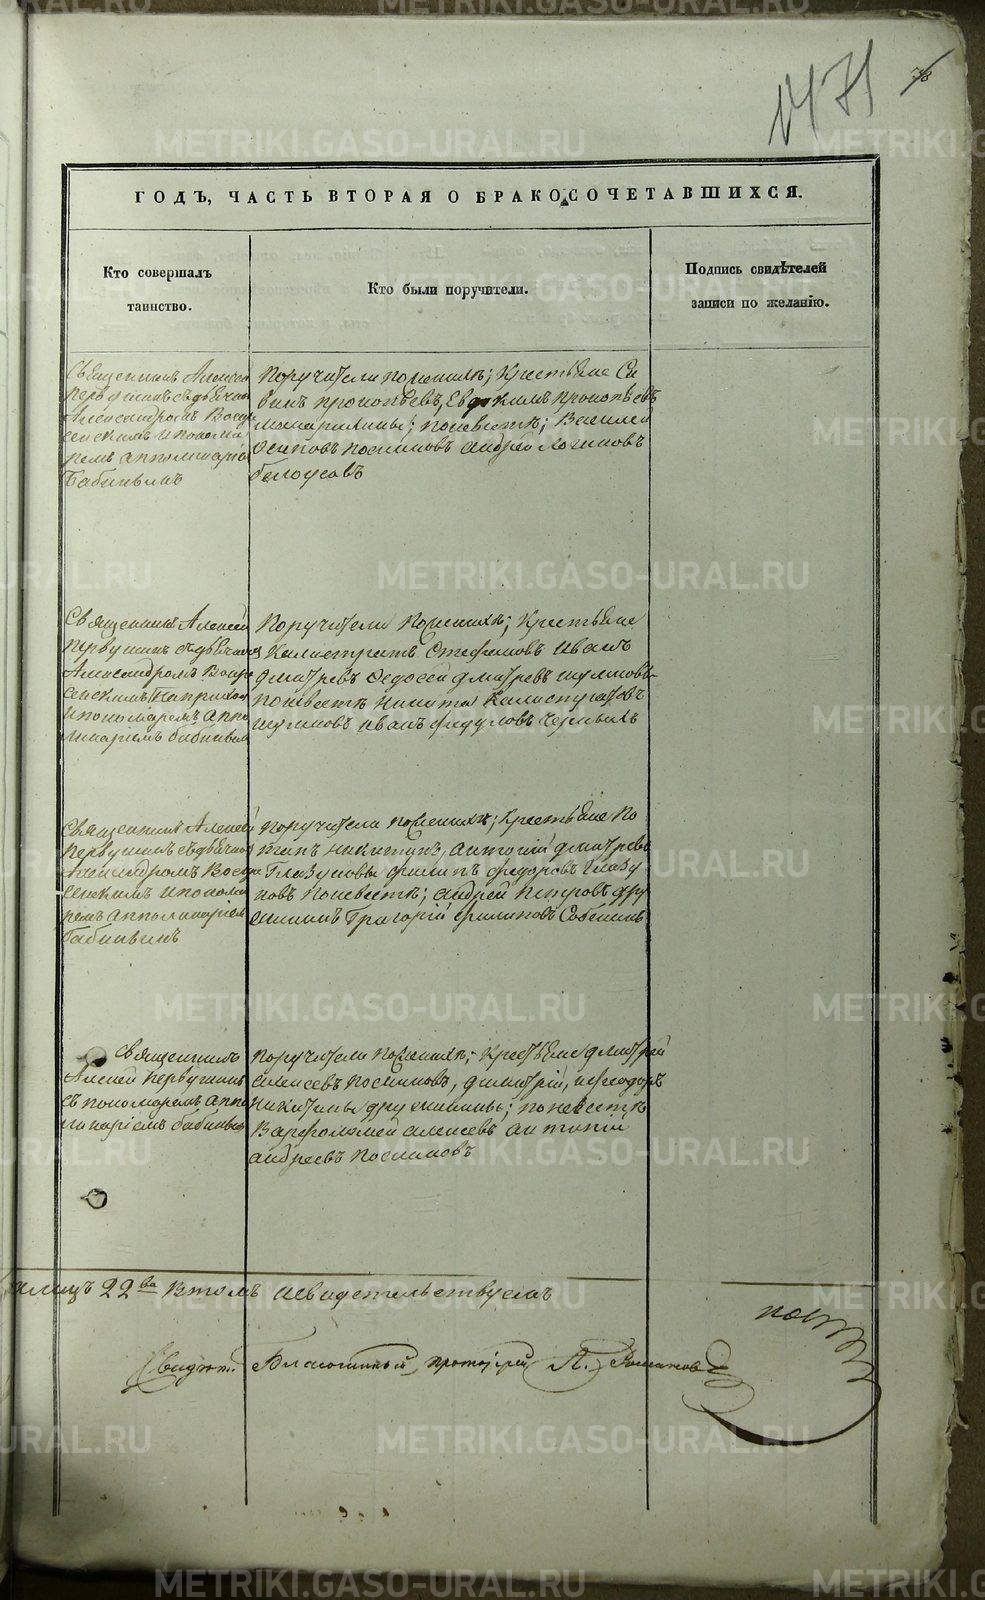 1471
78
ГОДЪ, ЧАСТЬ ВТОРАЯ О БРАКОСОЧЕТАВШИХСЯ.
Кто совершалъ
таинство.
Кто были поручители.
Подпись свидѣтелей
записи по желанію.
Священникъ Алексей
Первушинъ съ дьячкомъ
Александромъ Воскре
сенскимъ и понома
ремъ Апполинаріемъ
Бабинымъ
Поручители по женихѣ; Крестьяне Са
винъ Прокопьевъ, Евдокимъ Прокопьевъ
по невестѣ; Василей
Осиповъ Посниковъ Андрей Логиновъ
Белоусовъ
Священникъ Алексей
Первушинъ съ дьячкомъ
Александромъ Воскре
сенскимъ
и пономаремъ Аппо
линаріемъ Бабинымъ
Поручители По женихѣ; Крестьяне
Калистратъ Стефановъ Иванъ
Дмитревъ Федосей Дмитревъ
по невестѣ Никита Калистратовъ
Иванъ Федуловъ
Священникъ Алексей
Первушинъ съ дьячкомъ
Александромъ Воскре
сенскимъ и понома
ремъ Апполинаріемъ
Бабинымъ
Поручители по женихѣ; Крестьяне По
тапъ Никитинъ, Антоній Дмитревъ
Глазуновы Филипъ Федоровъ Глазу
новъ По невестѣ; Андрей Петровъ Дру
жининъ Григорій Филиповъ
Священникъ
Алексей Первушинъ
съ пономаремъ Аппо
линаріемъ Бабинымъ
Поручители по женихѣ; Крестьяне Дмитрей
Алексеевъ Посниковъ, Димитрій, и Феодоръ
Никитины Дружинины; по невестѣ
Варфоломей Алексеевъ Антоній
Андреевъ Посниковъ
лицъ 22ва В томъ и свидетельствуемъ
Свидѣт. Благочинный протоіерей П. Романов
METRIKI.GASO-URAL.RU